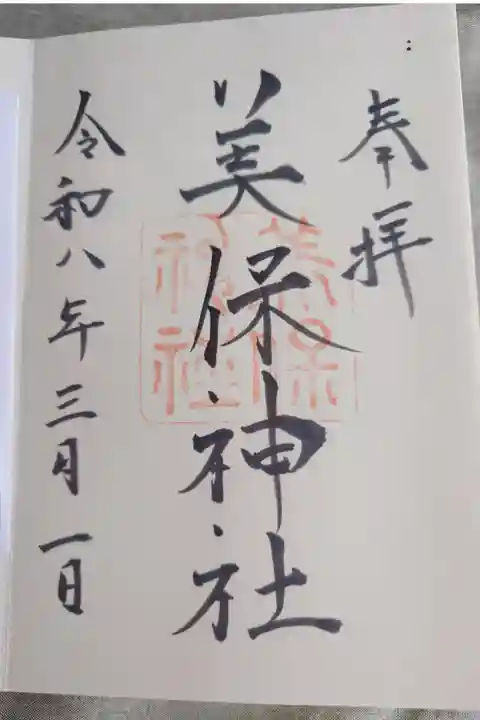 奉拝
美保神社
美保
神社
令和八年三月一日